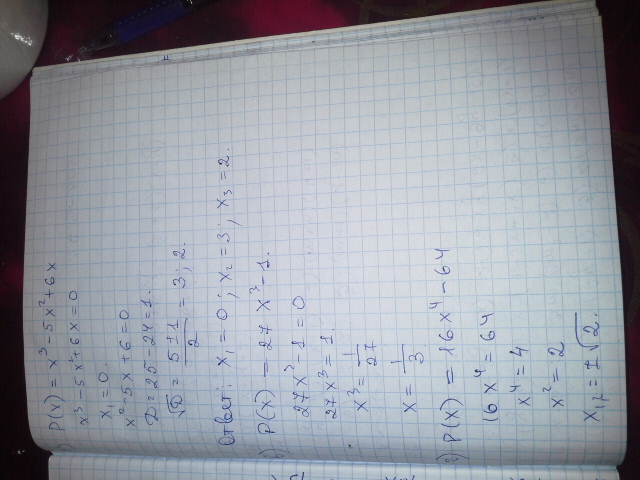 ) P(x) = x³ - 5x² + 6x
x³ - 5x² + 6x = 0
x₁ = 0
x² - 5x + 6 = 0
D = 25 - 24 = 1.
√D = (5 ± 1)/2 = 3; 2.
Ответ: x₁ = 0; x₂ = 3; x₃ = 2.
) P(x) = 27x³ - 1.
27x³ - 1 = 0
27x³ = 1.
x³ = 1/27
x = 1/3
) P(x) = 16x⁴ - 64
16x⁴ = 64
x⁴ = 4
x² = 2
x₁,₂ = ±√2.